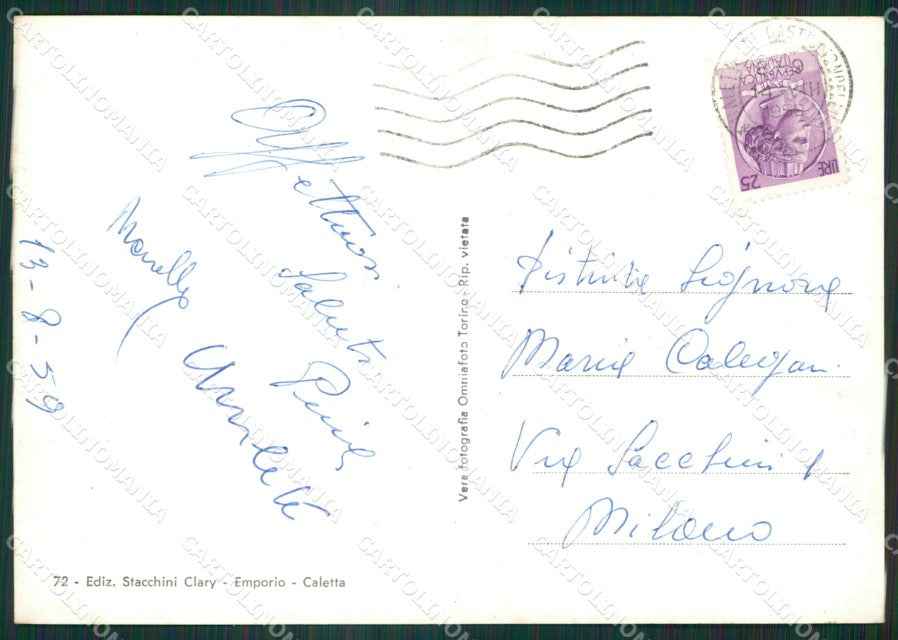 Affettuosi
saluti
Marcello
Annalete
13-8-59
72 - Ediz. Stacchini Clary - Emporio - Caletta
Vera fotografia Omniafoto Torino - Rip. vietata
LIRE 25
REPVBBLICA ITALIANA
Signora
Maria Calegari
Via Sacchini
Milano
CARTOLINOMANIA